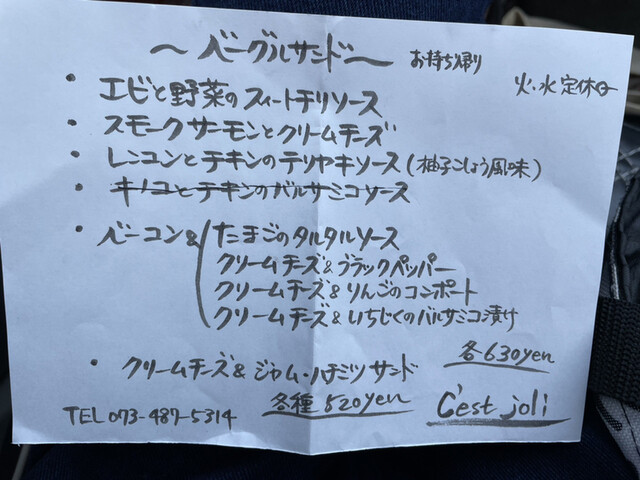 〜ベーグルサンド〜 お持ち帰り
火・水定休日
・エビと野菜のスィートチリソース
・スモークサーモンとクリームチーズ
・レンコンとチキンのテリヤキソース(柚子こしょう風味)
・キノコとチキンのバルサミコソース
・ベーコン& たまごのタルタルソース
クリームチーズ&ブラックペッパー
クリームチーズ&りんごのコンポート
クリームチーズ&いちじくのバルサミコ漬け
各630yen
・クリームチーズ&ジャム・ハチミツサンド
各種520yen
TEL 073-487-5314
C'est joli